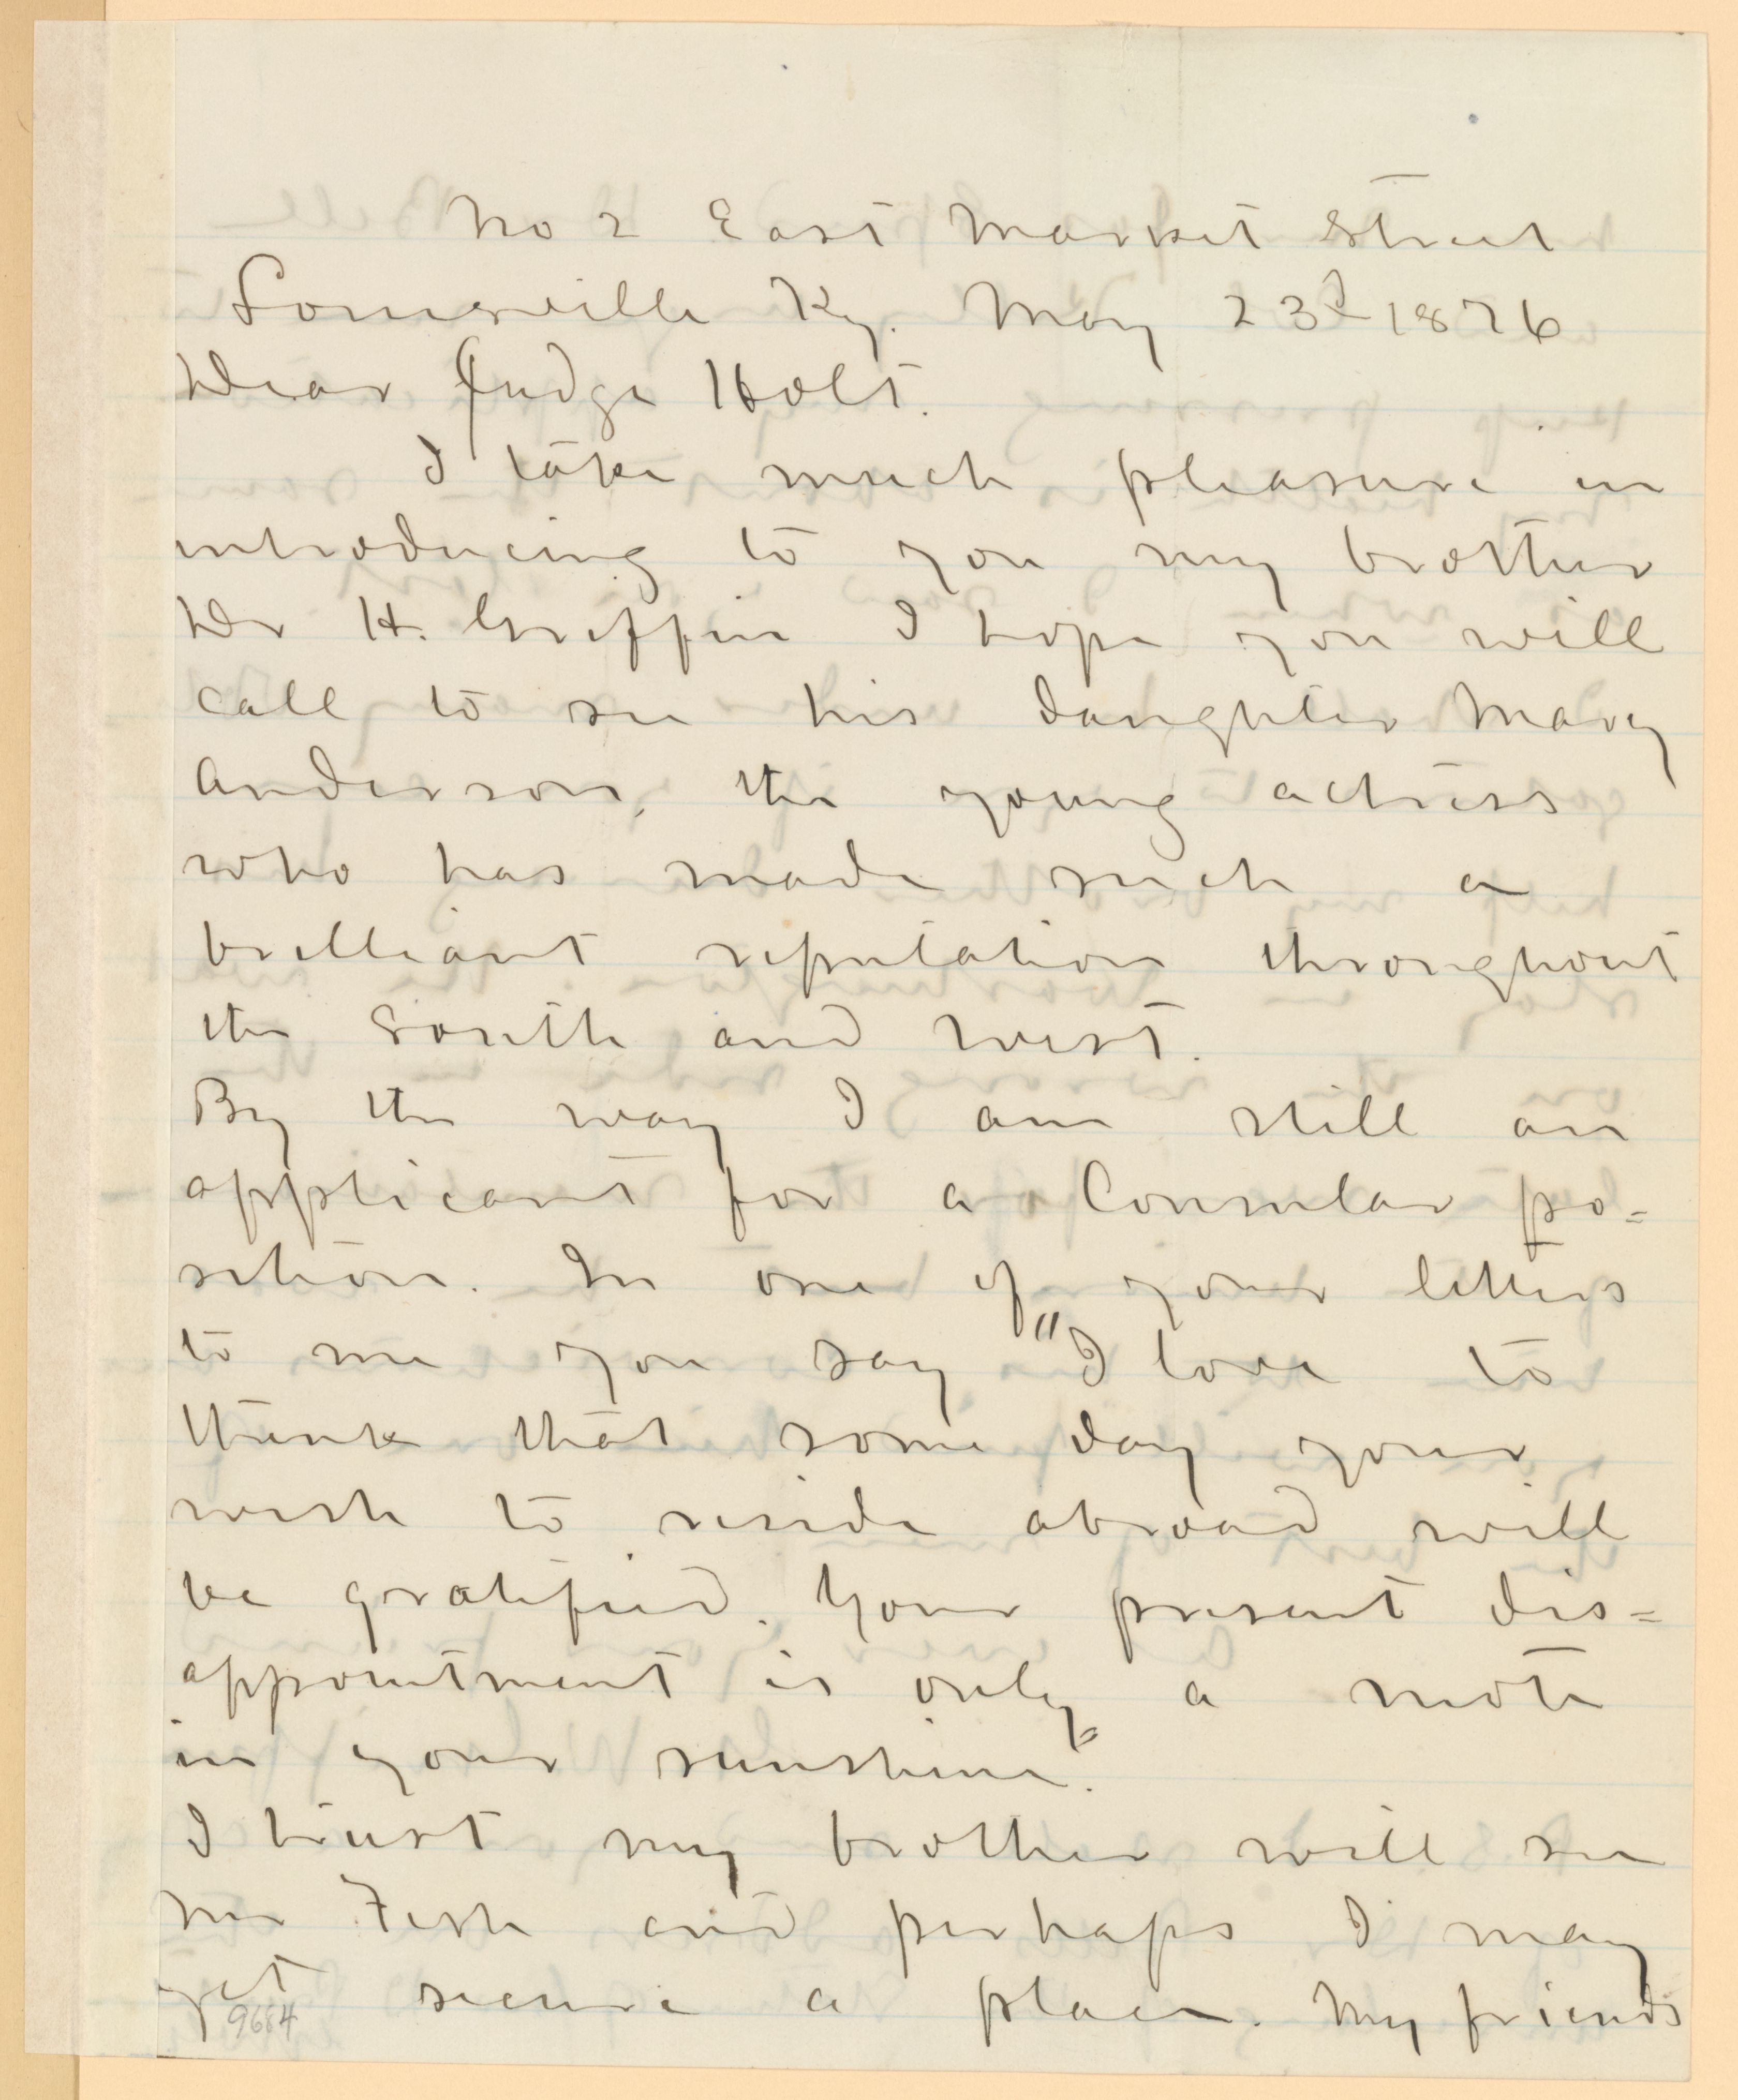 No 2 East Market Street
Louisville Ky. May 23d 1876
Dear Judge Holt.
I take much pleasure in
introducing to you my brother
Dr H. Griffin I hope you will
call to see his daughter Mary
Anderson, the young actress
who has made such a
brilliant reputation throughout
the South and West.
By the way I am still an
applicant for a Consular po=
sition. In one of your letters
to me you say "I love to
think that some day your
wish to reside abroad will
be gratified. Your present dis=
appointment is only a mote
in your sunshine".
I trust my brother will see
Mr Fish and perhaps I may
yet secure a place. My friends
9684